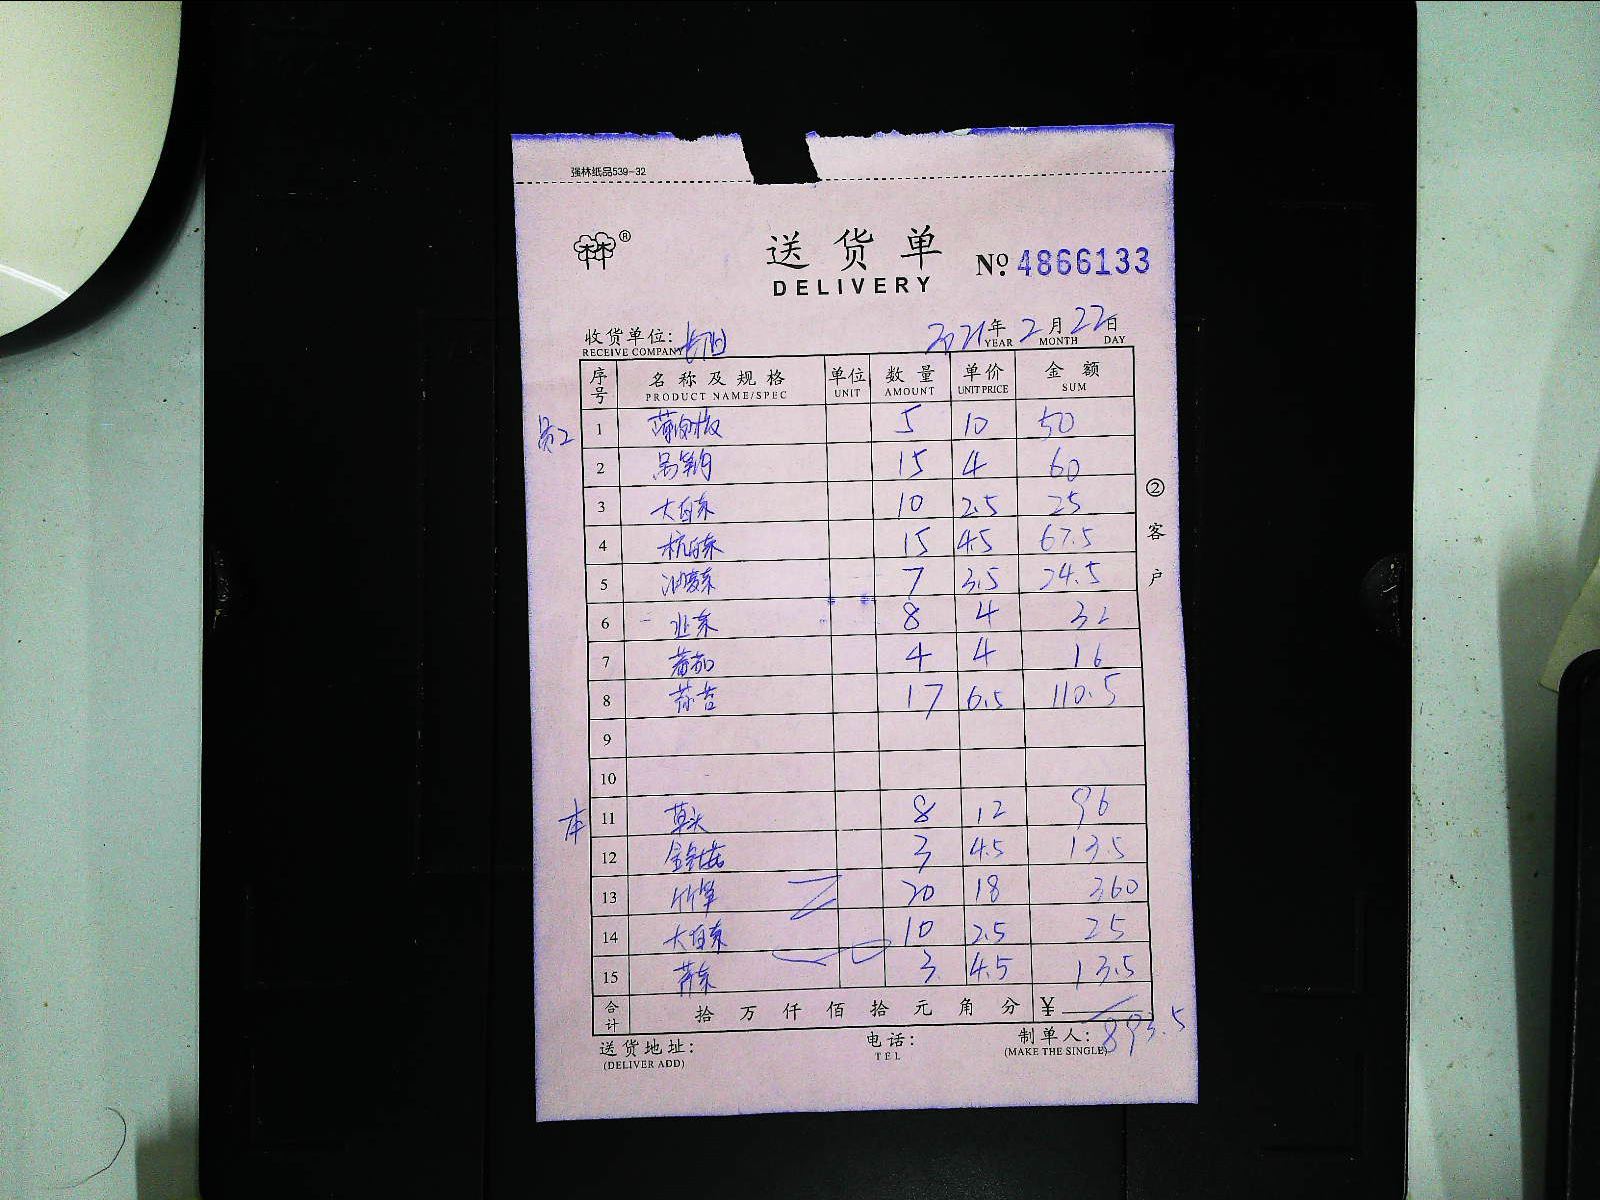 强林纸品539-32
林林®
送货单
DELIVERY
№ 4866133
收货单位:
RECEIVE COMPANY
2021年2月22日
YEAR MONTH DAY
序号 名称及规格 单位 数量 单价 金额
PRODUCT NAME/SPEC UNIT AMOUNT UNIT PRICE SUM
员工 1 5 10 50
2 15 4 60
3 大白菜 10 2.5 25
4 杭白菜 15 4.5 67.5
5 油麦菜 7 3.5 24.5
6 韭菜 8 4 32
7 蕃茄 4 4 16
8 蒜苔 17 6.5 110.5
9
10
本 11 草头 8 12 96
12 金针菇 3 4.5 13.5
13 竹笋 20 18 360
14 大白菜 10 2.5 25
15 3 4.5 13.5
合计 拾 万 仟 佰 拾 元 角 分 ¥ 893.5
送货地址: 电话: 制单人:
(DELIVER ADD) TEL (MAKE THE SINGLE)
②客户